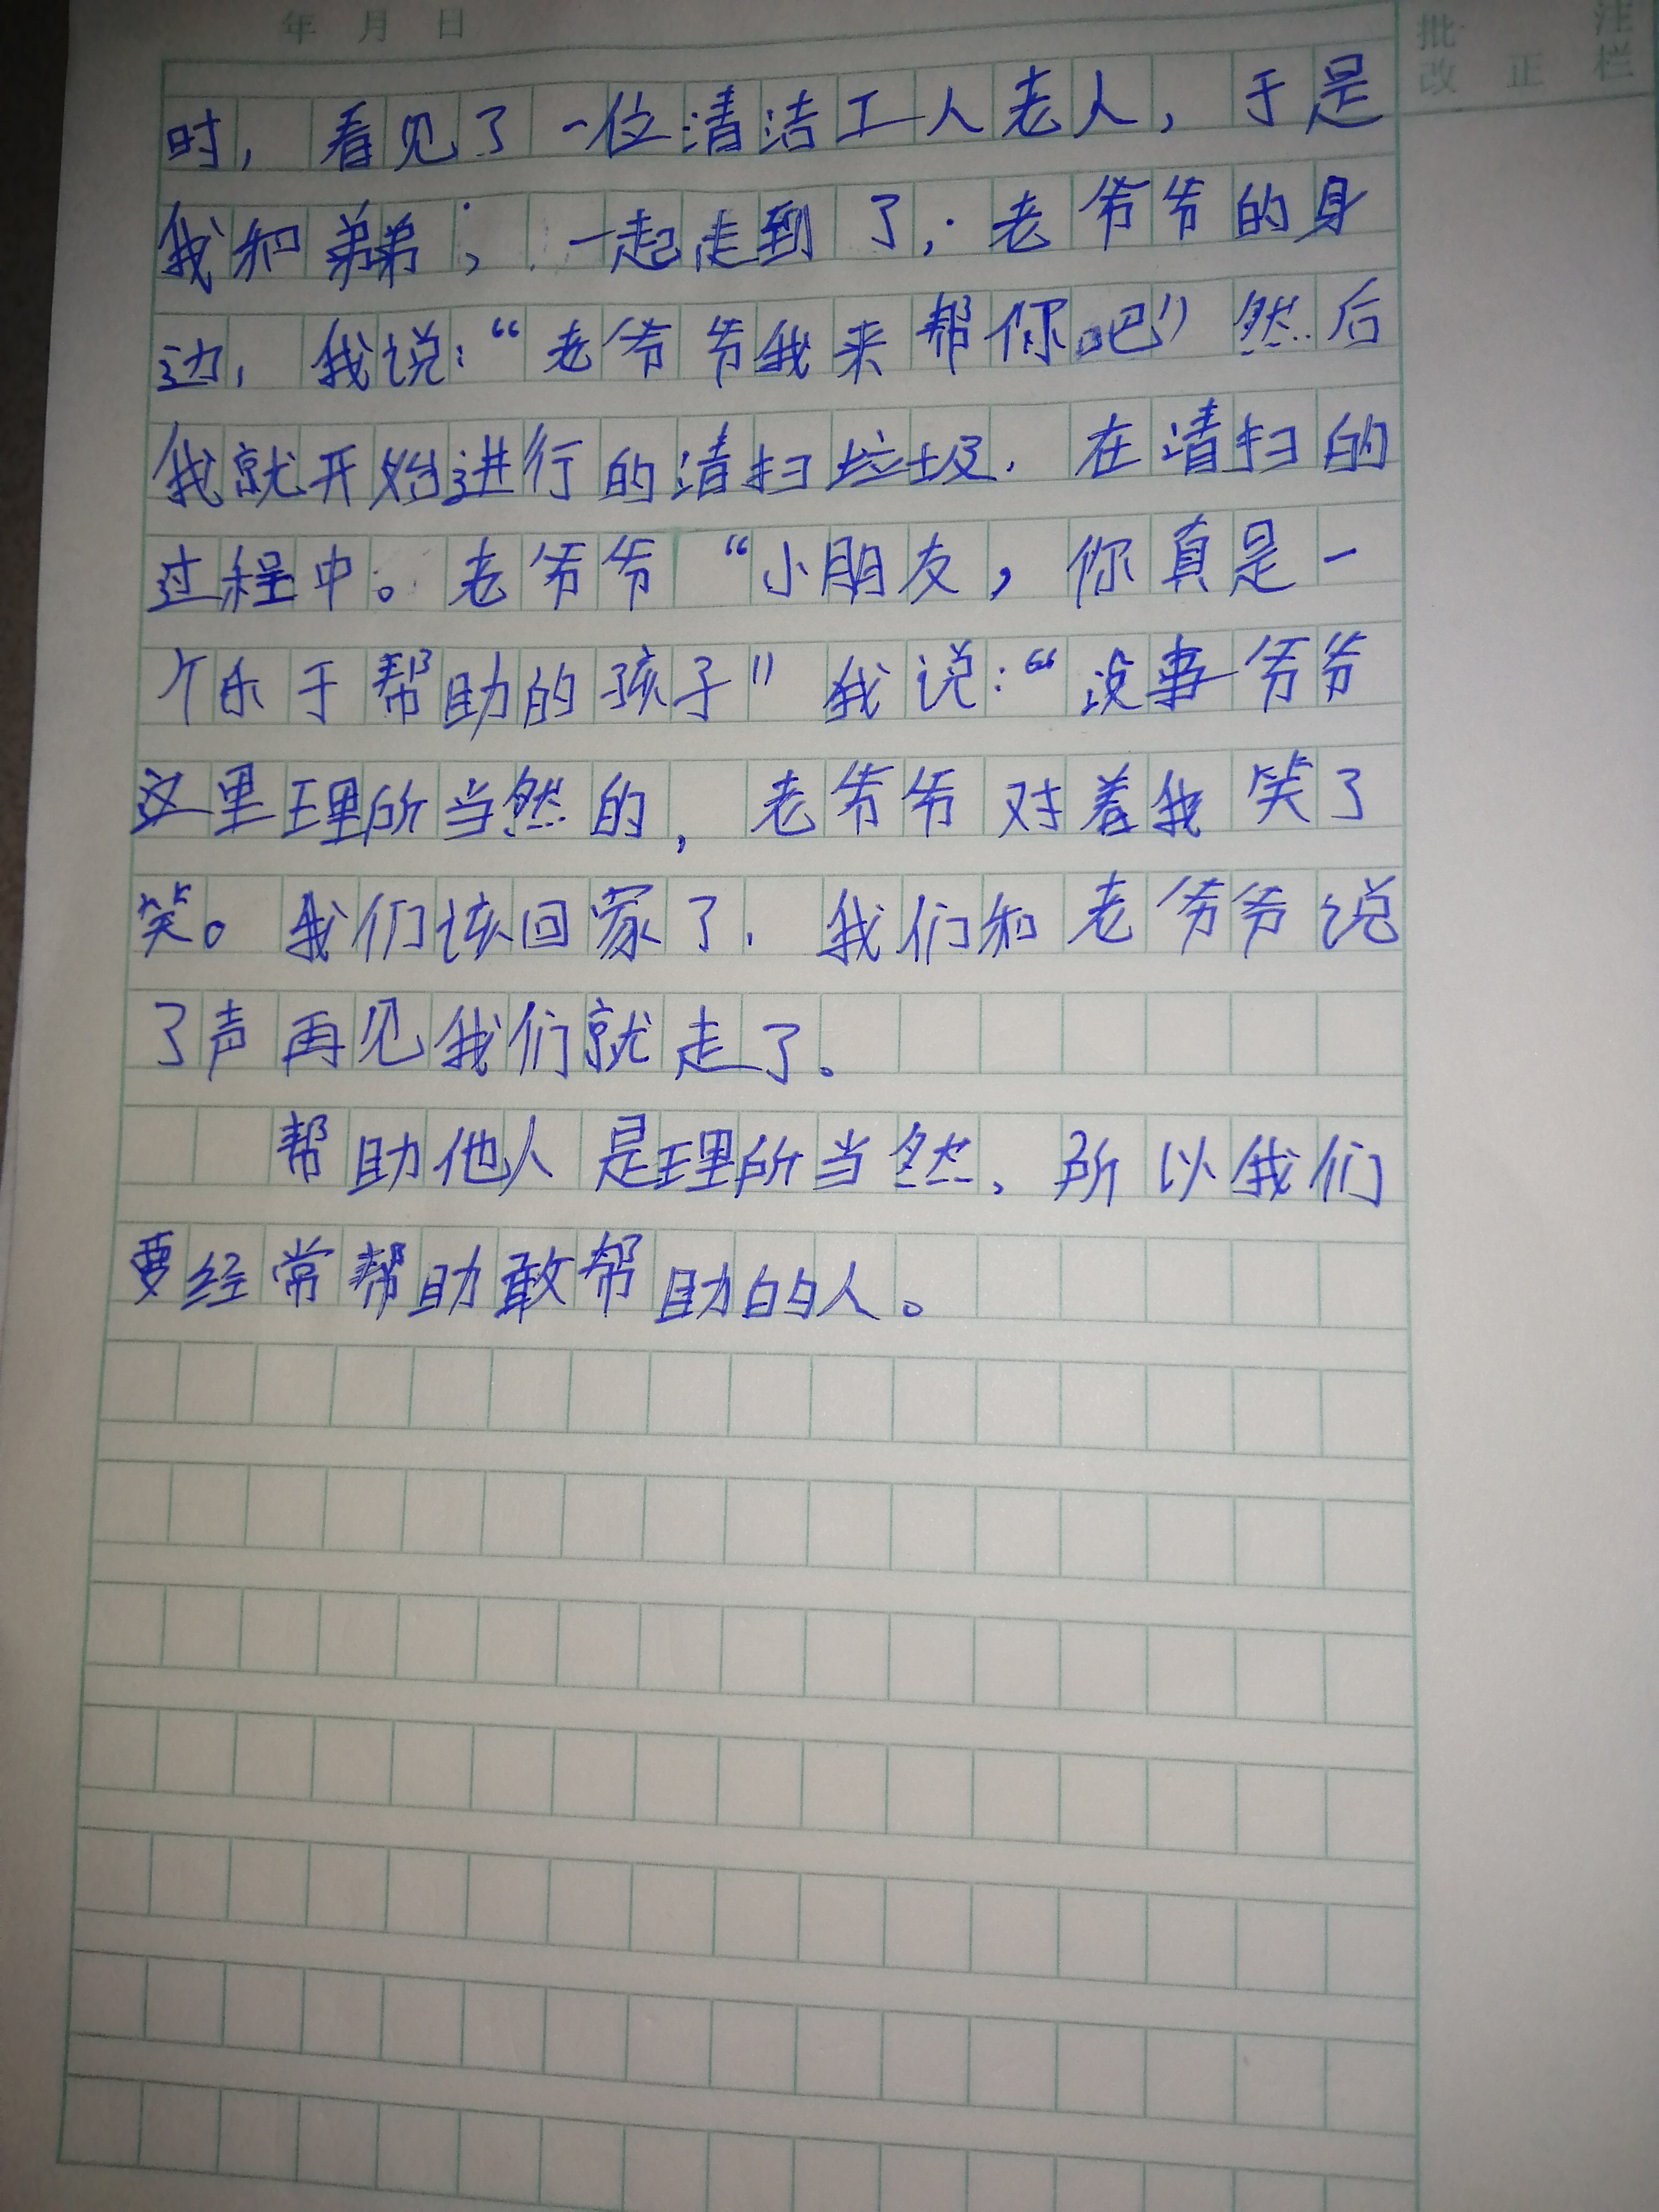 年 月 日
批 注
改 正 栏
时，看见了一位清洁工人老人，于是
我和弟弟，一起走到了，老爷爷的身
边，我说：“老爷爷我来帮你吧”然后
我就开始进行的清扫垃圾．在清扫的
过程中。老爷爷“小朋友，你真是一
个乐于帮助的孩子”我说：“没事爷爷
这里理所当然的，老爷爷对着我笑了
笑。我们该回家了．我们和老爷爷说
了声再见我们就走了。
帮助他人是理所当然、所以我们
要经常帮助敢帮助的人。